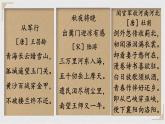 从军行
[唐] 王昌龄
青海长云暗雪山，
孤城遥望玉门关。
黄沙百战穿金甲，
不破楼兰终不还。
秋夜将晓
出篱门迎凉有感
[宋] 陆游
三万里河东入海，
五千仞岳上摩天。
遗民泪尽胡尘里，
南望王师又一年。
闻官军收河南河北
[唐] 杜甫
剑外忽传收蓟北，
初闻涕泪满衣裳。
却看妻子愁何在，
漫卷诗书喜欲狂。
白日放歌须纵酒，
青春作伴好还乡。
即从巴峡穿巫峡，
便下襄阳向洛阳。